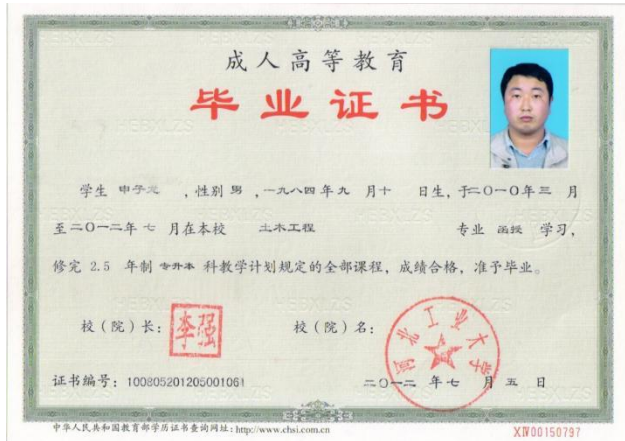 成人高等教育
毕业证书
学生 申子龙 ,性别 男 ,一九八四年九 月十 日生,于二〇一〇年三 月
至二〇一二年 七 月在本校 土木工程 专业 函授 学习,
修完 2.5 年制 专升本 科教学计划规定的全部课程,成绩合格,准予毕业。
校(院)长: 李强 校(院)名: 河北工业大学
证书编号: 100805201205001061 二〇一二 年 七 月 五 日
中华人民共和国教育部学历证书查询网址: http://www.chsi.com.cn XⅣ00150797